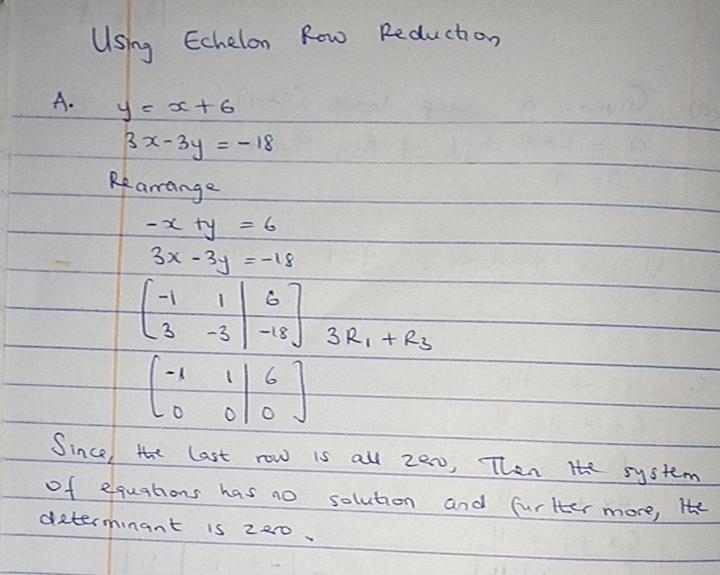 Using Echelon Row Reduction
A. y = x + 6
3x - 3y = -18
Rearrange
-x + y = 6
3x - 3y = -18
[ -1 1 | 6 ]
[ 3 -3 | -18 ] 3R₁ + R₃
[ -1 1 | 6 ]
[ 0 0 | 0 ]
Since, the last row is all zero, Then the system
of equations has no solution and further more, the
determinant is zero.